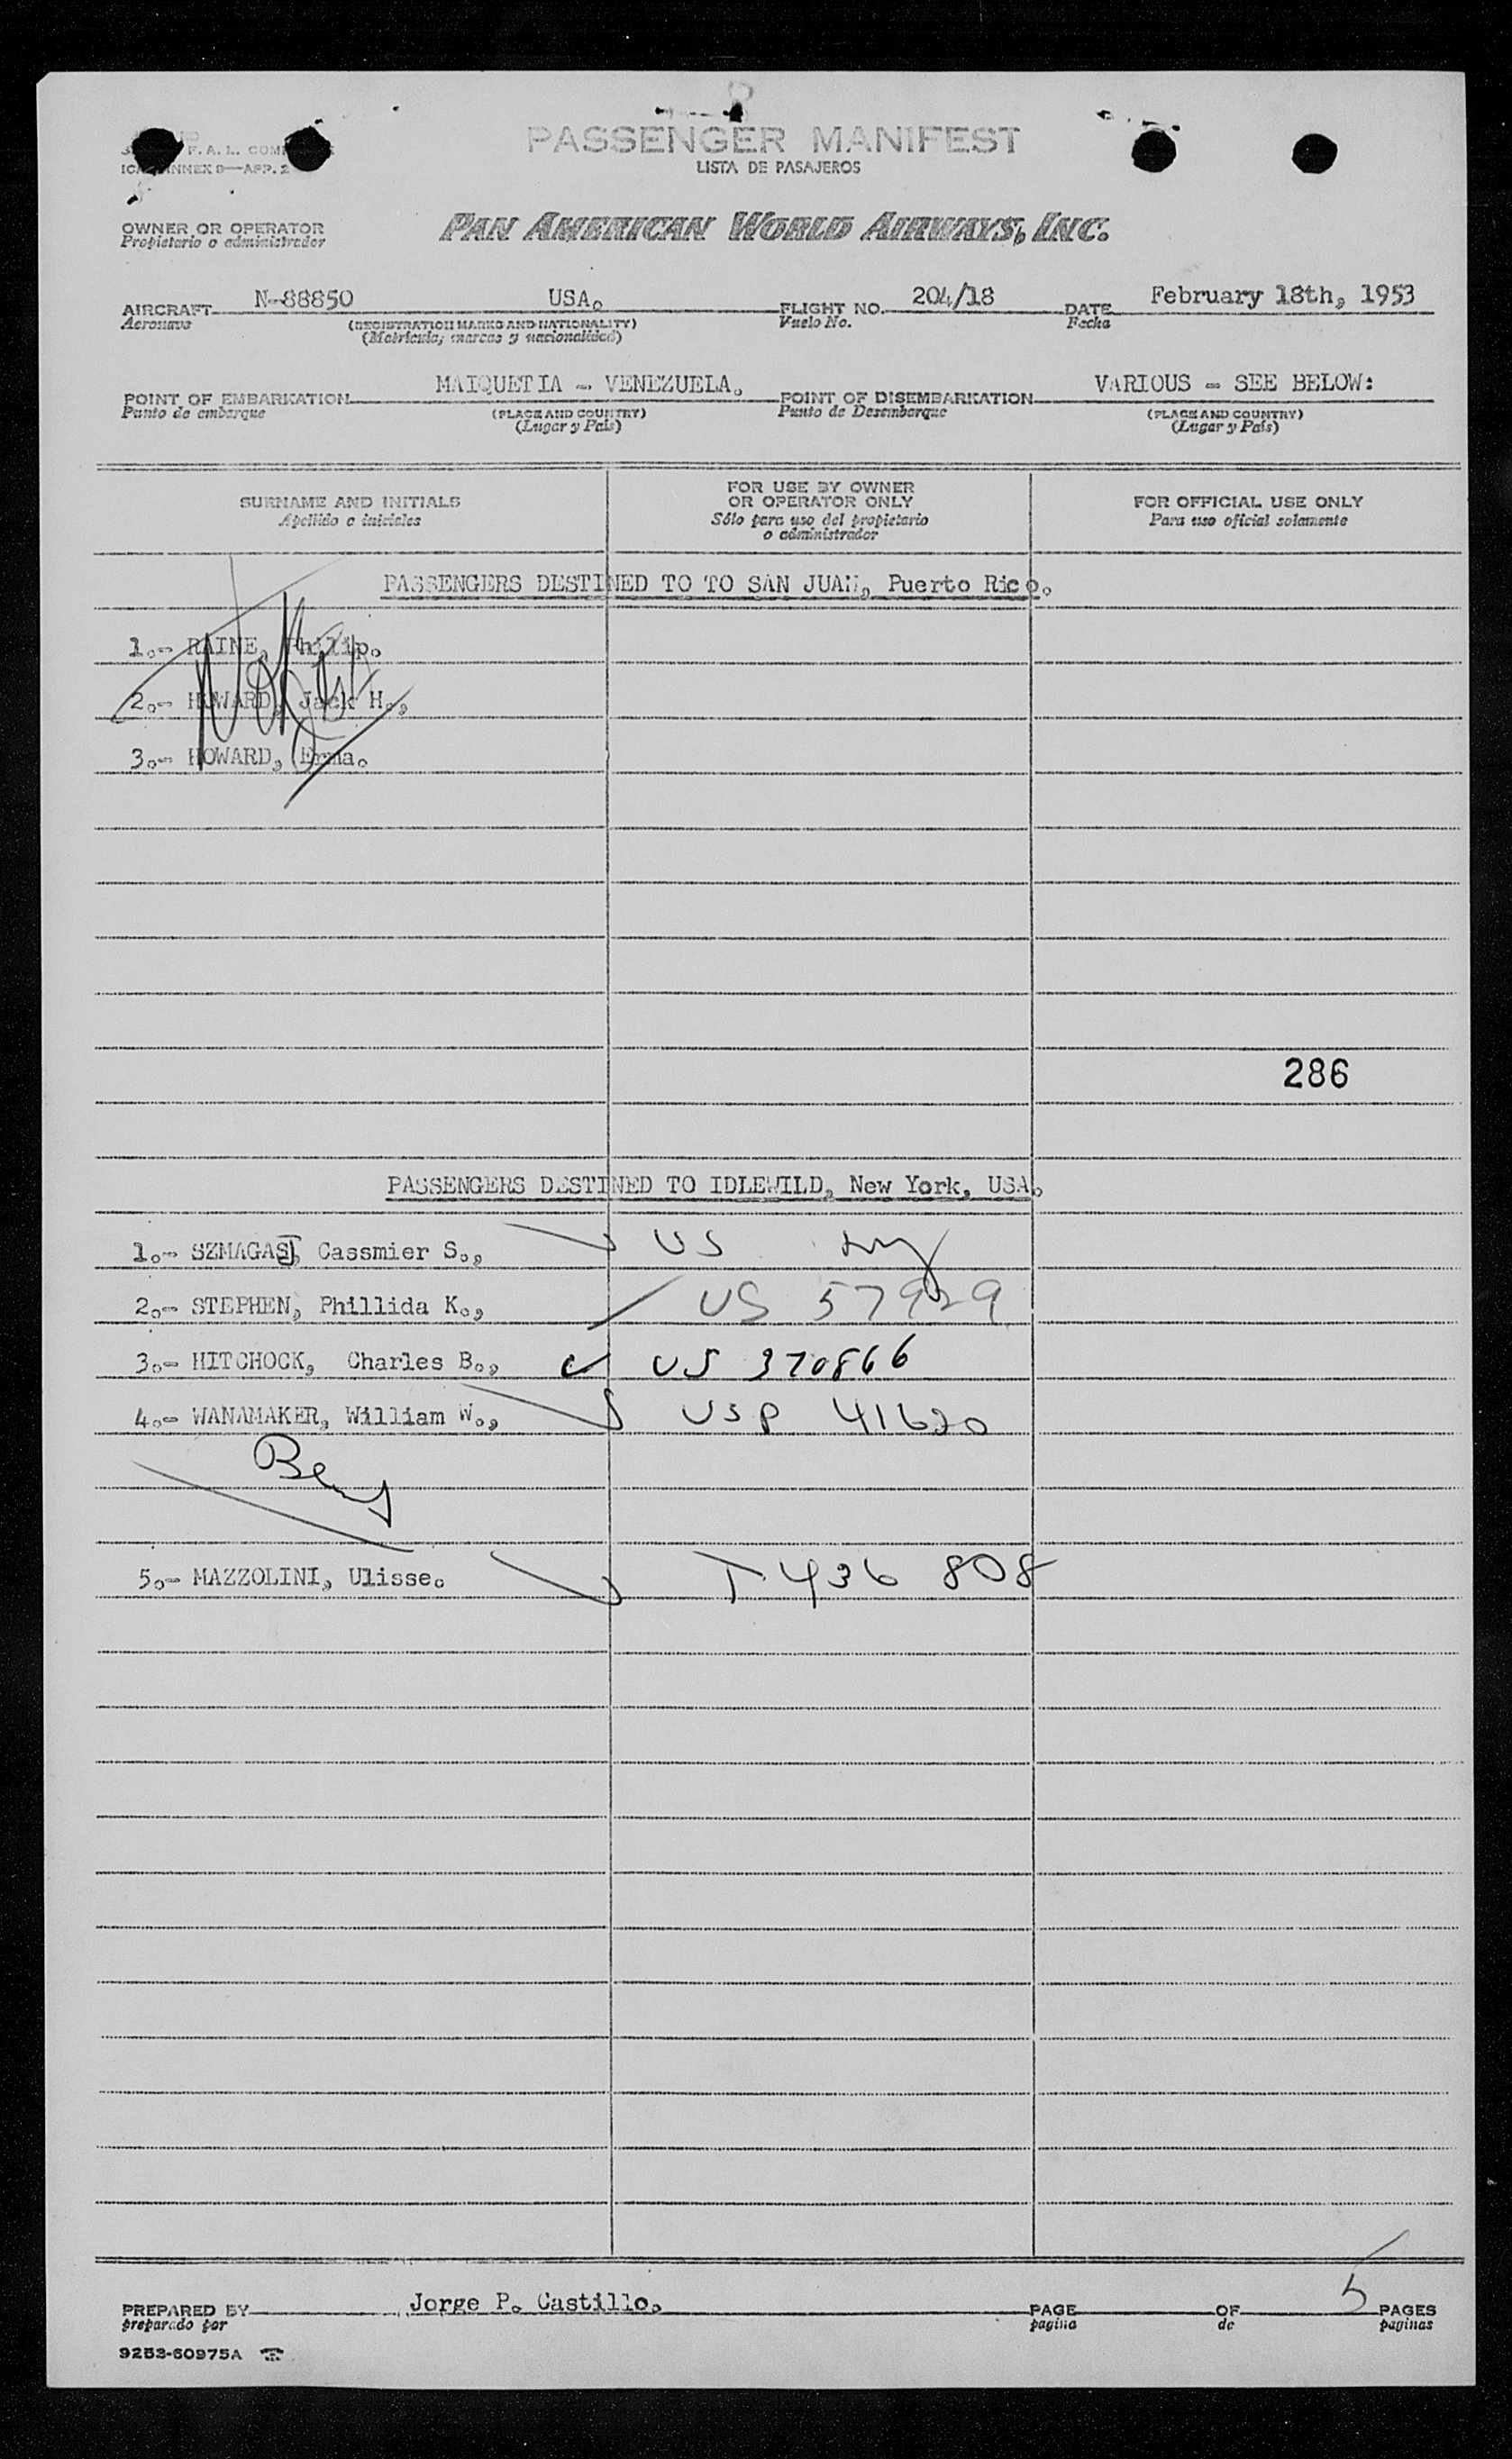 PASSENGER MANIFEST
LISTA DE PASAJEROS
F. A. L. COM
ANNEX 9—APP. 2
OWNER OR OPERATOR
Propietario o administrador
PAN AMERICAN WORLD AIRWAYS, INC.
AIRCRAFT N-88850 USA. FLIGHT NO. 204/18 DATE February 18th, 1953
Aeronave (REGISTRATION MARKS AND NATIONALITY) Vuelo No. Fecha
(Matricula, marcas y nacionalidad)
POINT OF EMBARKATION MAIQUETIA - VENEZUELA. POINT OF DISEMBARKATION VARIOUS - SEE BELOW:
Punto de embarque (PLACE AND COUNTRY) Punto de Desembarque (PLACE AND COUNTRY)
(Lugar y País) (Lugar y País)
SURNAME AND INITIALS
Apellido e iniciales
FOR USE BY OWNER
OR OPERATOR ONLY
Sólo para uso del propietario
o administrador
FOR OFFICIAL USE ONLY
Para uso oficial solamente
PASSENGERS DESTINED TO TO SAN JUAN, Puerto Rico.
1.- RAINE, Philip.
2.- HOWARD, Jack H.,
3.- HOWARD, Erma.
286
PASSENGERS DESTINED TO IDLEWILD, New York, USA.
1.- SZMAGAJ, Cassmier S., US
2.- STEPHEN, Phillida K., US 57929
3.- HITCHOCK, Charles B., US 370866
4.- WANAMAKER, William W., USP 41620
5.- MAZZOLINI, Ulisse. T 436 808
PREPARED BY Jorge P. Castillo. PAGE OF 5 PAGES
preparado por pagina de paginas
9253-60975A